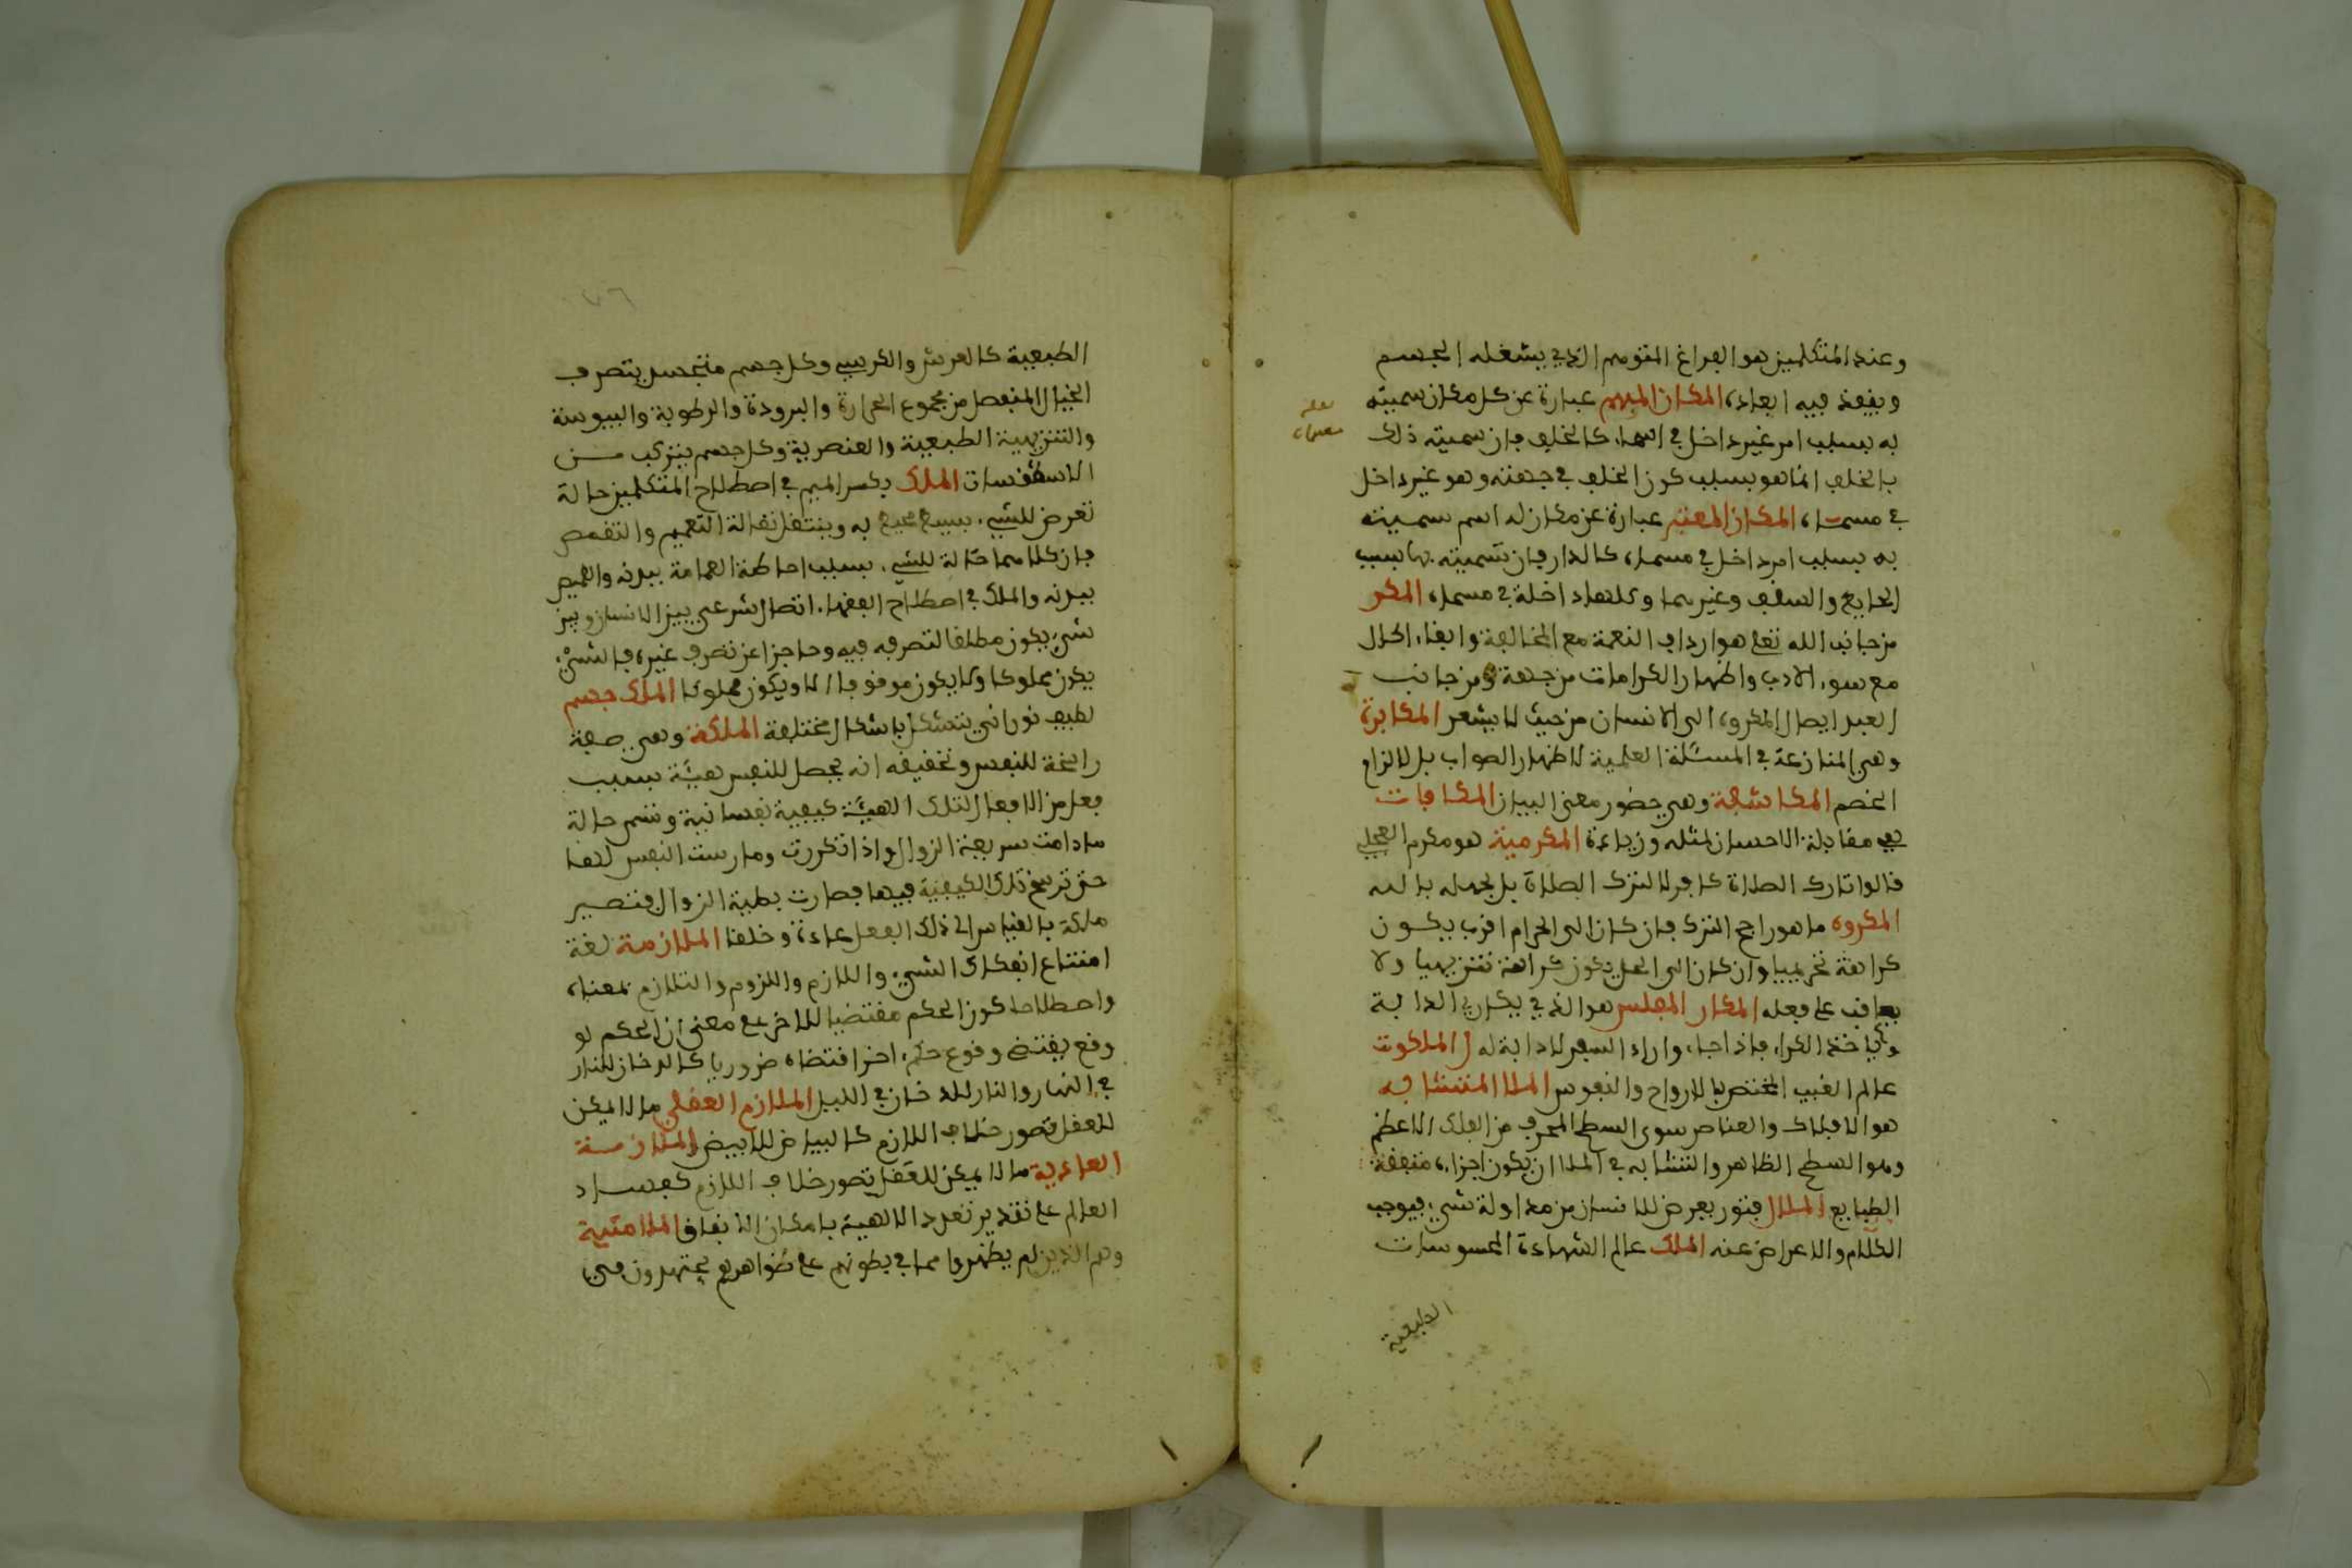 وعند المتكلمين هو الفراغ المتوهم الذي يشغله الجسم
وينفذ فيه ابعاده المكان المبهم عبارة عن كل مكان سميته
به بسبب امر غير داخل في كالخلف فان سميته ذلك
بالخلف انما هو بسبب كون الخلف في جهته وهو غير داخل
في مسماه المكان المعين عبارة عن مكان له اسم سميته
به بسبب امر داخل في مسماه كالدار فان تسميته بها بسبب
الحايط والسقف وغيرهما وكلها داخلة في مسماه المكر
من جانب الله تعلى هو ارداف النعمة مع المخالفة وابقاء الحال
مع سوء الادب واظهار الكرامات من جهة ومن جانب
العبد ايصال المكروه الى الانسان من حيث لا يشعر المكابرة
وهي المنازعة في المسئلة العلمية لا ظهار الصواب بل لالزام
الخصم المكاشفة وهي حضور معنى البيان المكافات
هي مقابلة الاحسان لمثله وزيادة المكرمية هو مكرم العجلي
قالوا تارك الصلاة كافر لا لترك الصلاة بل لجهله بالله
المكروه ما هو راجح الترك فان كان الى الحرام اقرب يكون
كراهة تحريميا وان كان الى الحل يكون كراهة تنزيهيا ولا
يعاقب على فعله المكار المفلس هو الذي يكاري الدابة
وياخذ الكراء فاذا جاء واراد السفر لا دابة له الملكوت
عالم الغيب المختص بالارواح والنفوس الملا المتشابه
هو الافلاك والعناصر سوى السطح المحدب من الفلك الاعظم
وهو السطح الظاهر والتشابه في الملا ان يكون اجزاءه متفقة
الطبايع الملال فتور يعرض للانسان من مداولة شيء فيوجب
الكلام والاعراض عنه الملك عالم الشهادة المحسوسات
الطبيعية
الطبيعية كالعرش والكرسي وكل جسم يتصرف
الخيال المنفصل من مجموع الحرارة والبرودة والرطوبة واليبوسة
والتنزيهية الطبيعية والعنصرية وكل جسم يتركب من
الاسطقسات الملك بكسر الميم في اصطلاح المتكلمين حالة
تعرض للشيء بسبب محيط به وينتقل بانتقاله التعميم والتقمص
فان كلاهما حالة للشيء بسبب احاطة العمامة ببدنه والقميص
ببدنه والملك في اصطلاح الفقهاء اتصال شرعي بين الانسان وبين
شيء يكون مطلقا لتصرفه فيه وحاجزا عن تصرف غيره فالشيء
يكون مملوكا ولا يكون موقوفا الا ويكون مملوكا الملك جسم
لطيف نوراني يتشكل باشكال مختلفة الملكة وهي صفة
راسخة للنفس وتحقيقه انه يحصل للنفس هيئة بسبب
فعل من الافعال لتلك الهيئة كيفية نفسانية وتسمى حالة
مادامت سريعة الزوال واذا تكررت ومارست النفس لها
حتى ترسخ تلك الكيفية فيها فصارت بطية الزوال فتصير
ملكة بالقياس الى ذلك الفعل عادة وخلقا الملازمة لغة
امتناع انفكاك الشيء واللازم واللزوم والتلازم بمعناه
واصطلاحا كون الحكم مقتضيا للاخر على معنى ان الحكم لو
وقع يقتضي وقوع حكم اخر اقتضاء ضروريا كالدخان للنار
في النهار والنار للدخان في الليل الملازم العقلي ما لا يمكن
للعقل تصور خلاف اللازم كالبياض للابيض الملازمة
العادية ما لا يمكن للعقل تصور خلاف اللازم كفساد
العالم على تقدير تعدد الالهية بامكان الاتفاق الملامتية
وهم الذين لم يظهروا مما في بطونهم على ظواهرهم يجتهدون في